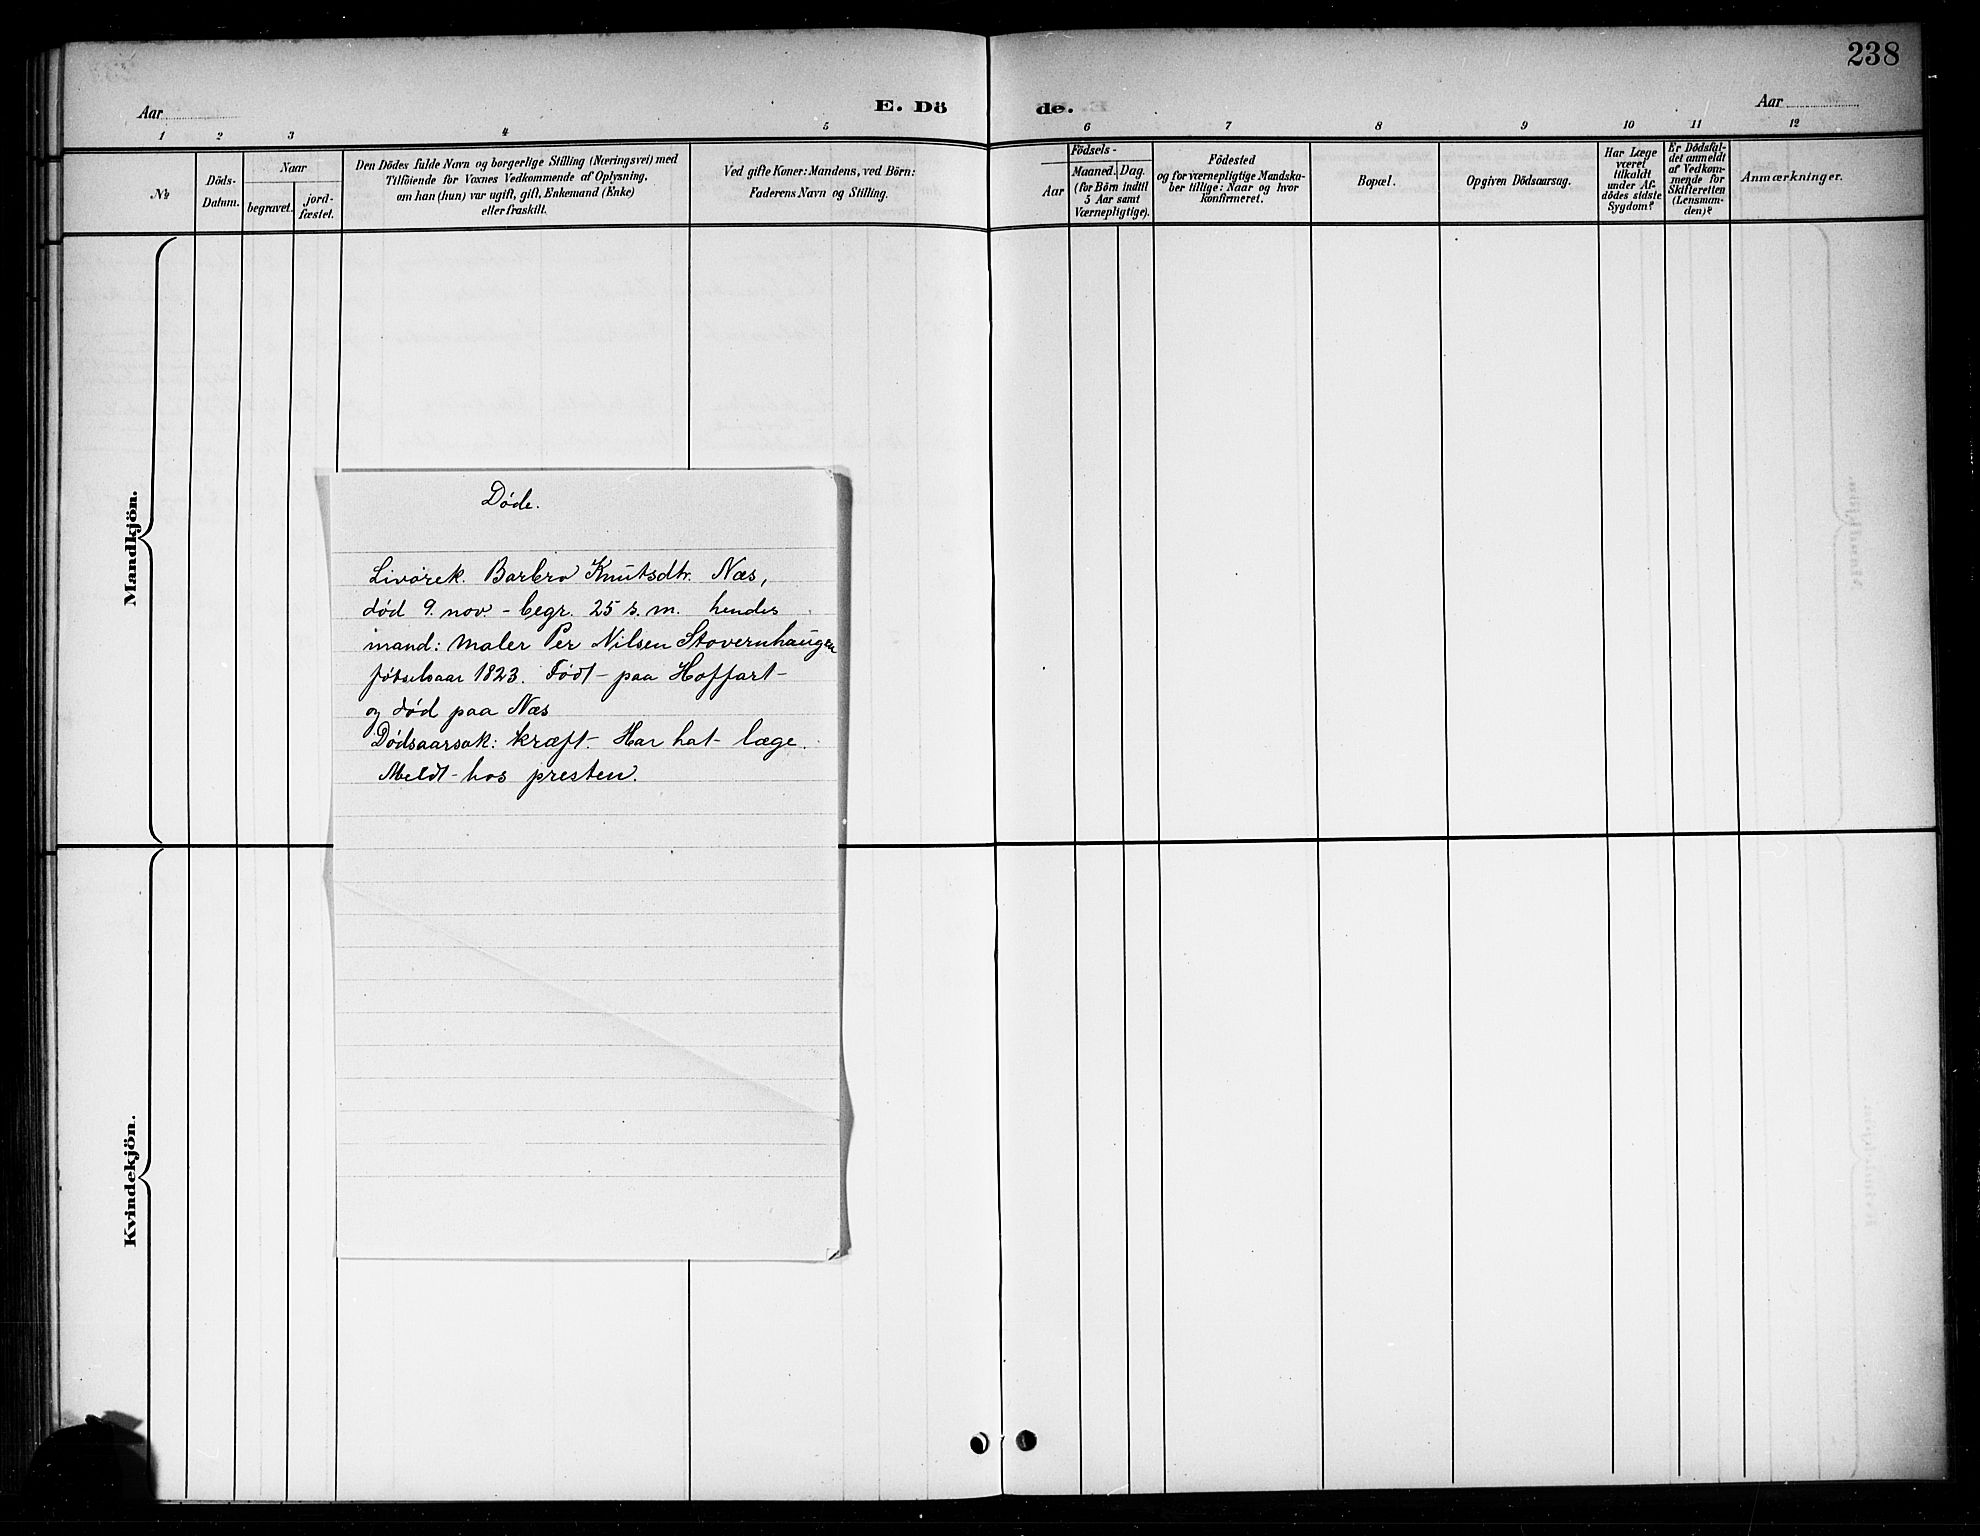 238
Aar
E. Dö
de.
Aar
1 2 3 4 5 6 7 8 9 10 11 12
№
Döds-
Datum.
Naar
begravet.
jord-
fæstet.
Den Dödes fulde Navn og borgerlige Stilling (Næringsvei) med
Tilföiende for Voxnes Vedkommende af Oplysning,
om han (hun) var ugift, gift, Enkemand (Enke)
eller fraskilt.
Ved gifte Koner: Mandens, ved Börn:
Faderens Navn og Stilling.
Födsels-
Aar
Maaned.
Dag.
(for Börn indtil
5 Aar samt
Værnepligtige).
Födested
og for værnepligtige Mandska-
ber tillige: Naar og hvor
konfirmeret.
Bopæl.
Opgiven Dödsaarsag.
Har Læge
været
tilkaldt
under Af-
dödes sidste
Sygdom?
Er Dödsfal-
det anmeldt
af Vedkom-
mende for
Skifteretten
(Lensman-
den)?
Anmærkninger.
Mandkjön.
Døde.
Livörek. Barbro Knutsdtr. Næs,
død 9. nov. - begr. 25 s. m. hendes
mand: maler Per Nilsen Stovernhaugen
fødselsaar 1823. Født - paa Hoffart -
og død paa Næs
Dødsaarsak: kræft. Har hat læge.
Meldt - hos presten.
Kvindekjön.